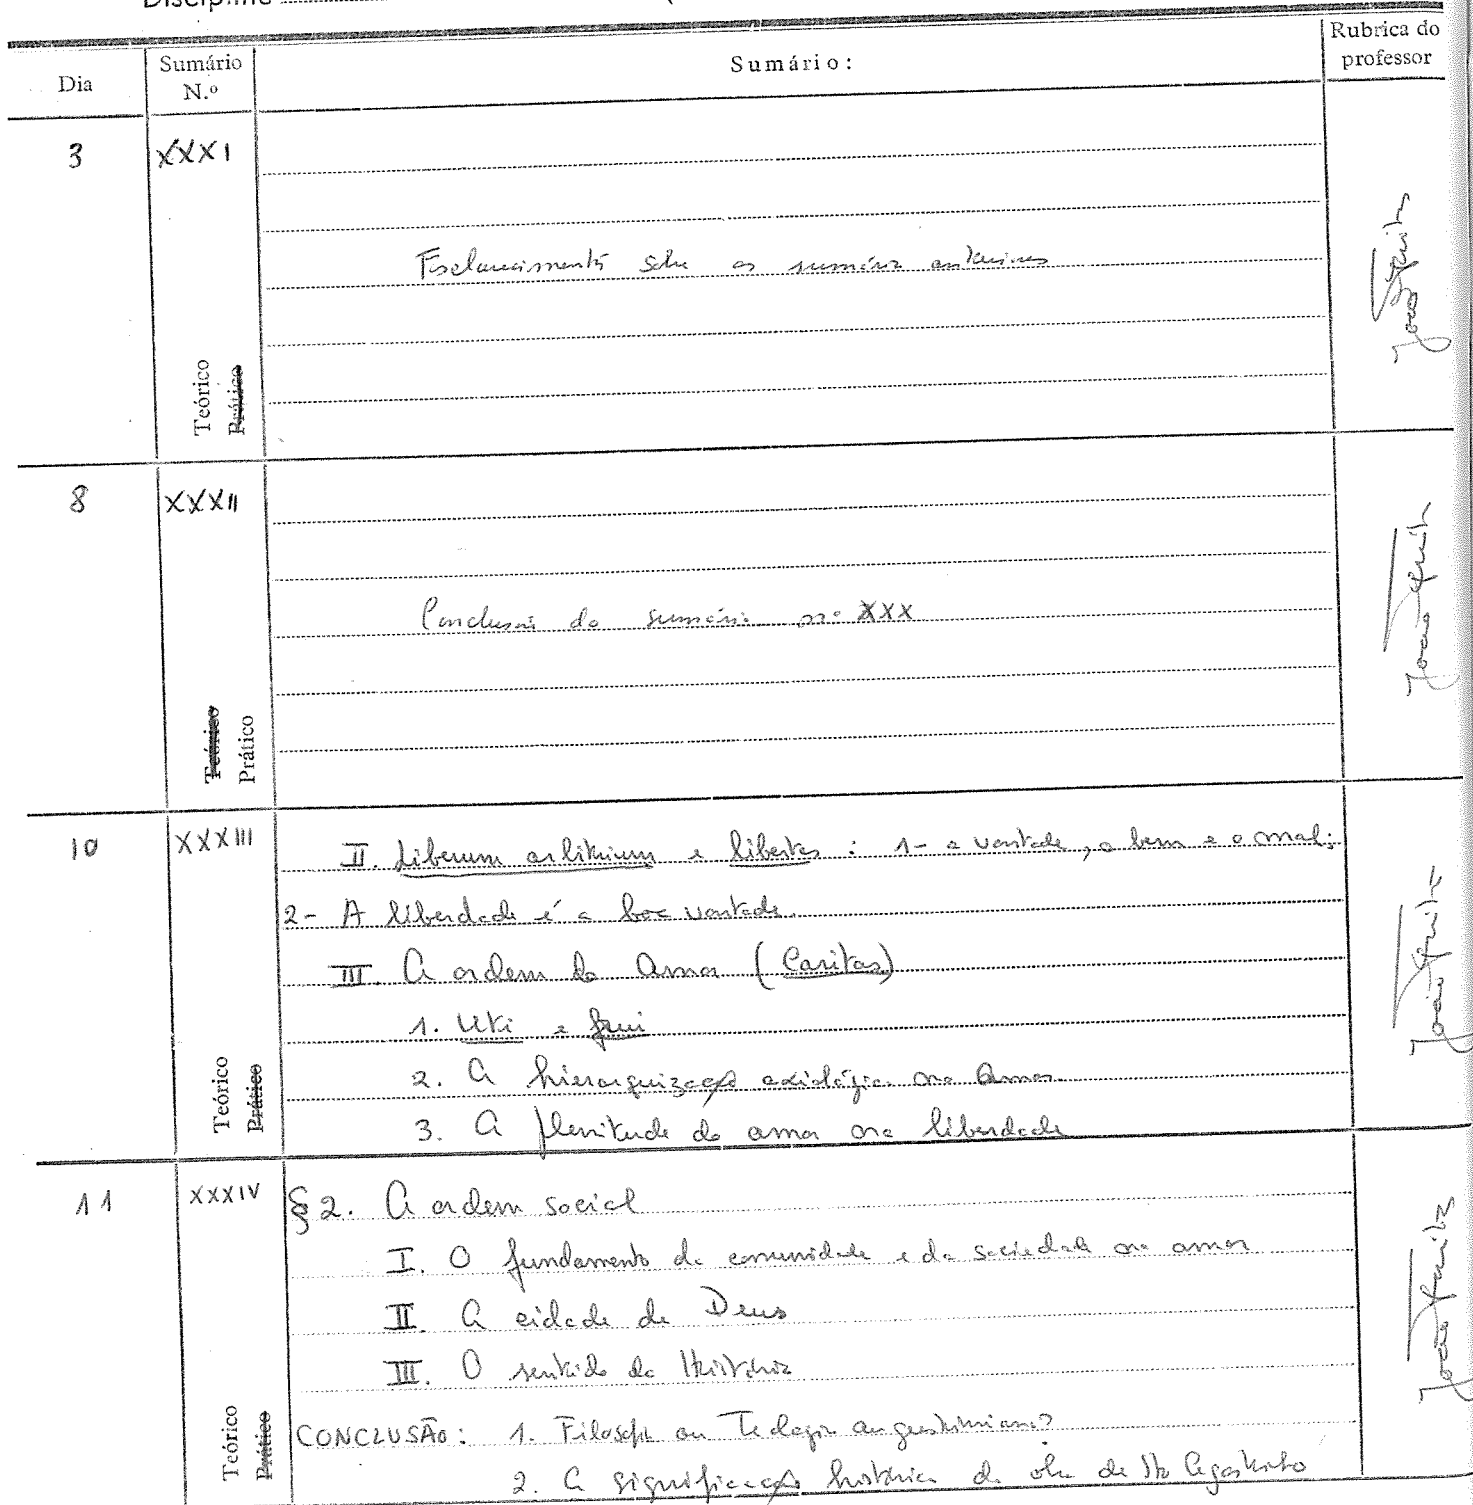 Disciplina
Dia
Sumário N.º
Sumário:
Rubrica do professor
3
XXXI
Esclarecimentos sobre os sumários anteriores
Teórico
Prático
João
8
XXXII
Conclusão do sumário nº XXX
Teórico
Prático
João
10
XXXIII
II. Liberum arbitrium e libertas : 1- a vontade, o bem e o mal;
2- A liberdade é a boa vontade.
III. A ordem do Amor (Caritas)
1. Uti e frui
2. A hierarquização axiológica no Amor
3. A plenitude do amor na liberdade
Teórico
Prático
João
11
XXXIV
§ 2. A ordem social
I. O fundamento da comunidade e da sociedade no amor
II. A cidade de Deus
III. O sentido da História
CONCLUSÃO: 1. Filosofia ou Teologia augustiniana?
2. A significação histórica da obra de Sto Agostinho
Teórico
Prático
João